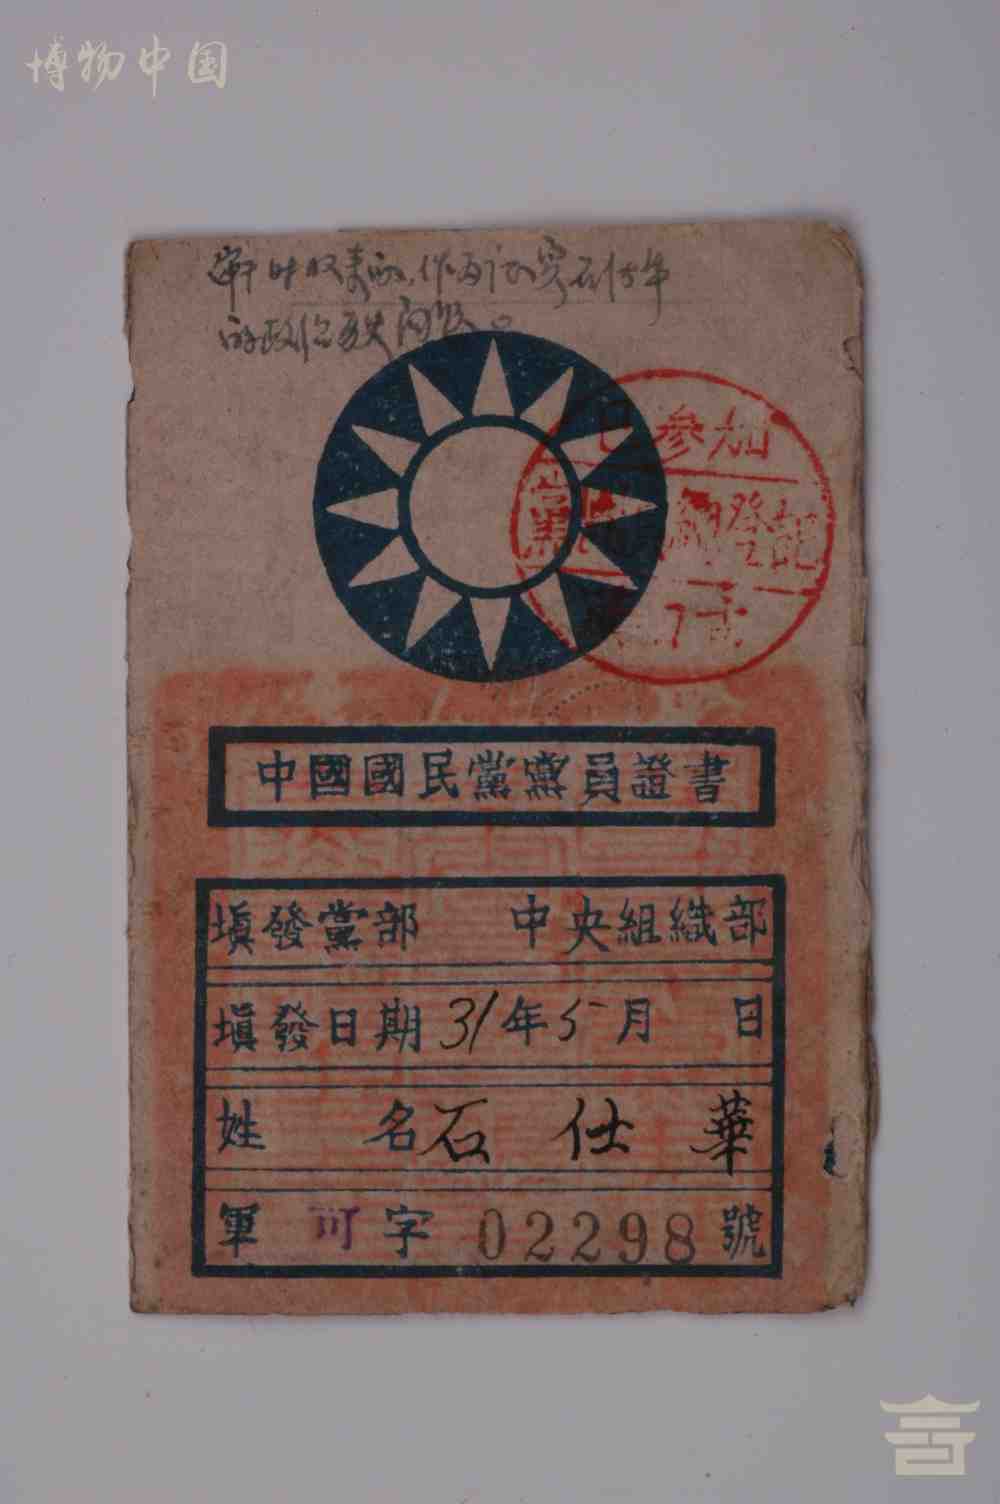 博物中国
已参加
黨團員總登記
中國國民黨黨員證書
填發黨部 中央組織部
填發日期 31年5月 日
姓 名 石仕華
軍 可 字 02298 號